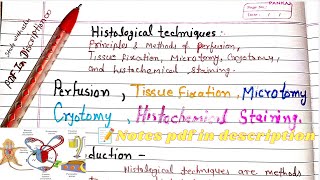 PANKAJ
Page No.
Date
PDF In Description
Histological techniques :-
Principles & Methods of perfusion,
Tissue Fixation, Microtomy, Cryotomy,
and histochemical staining.
Perfusion, Tissue Fixation, Microtomy
Cryotomy, Histochemical Staining.
Notes pdf in description
duction -
Histological techniques are methods